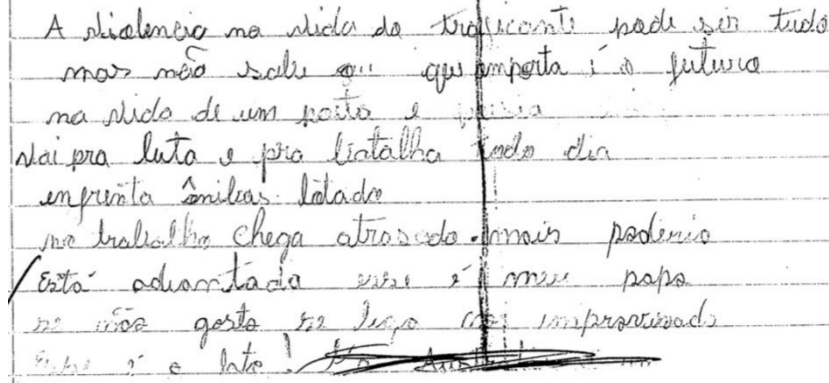 A violencia na vida do traficante pode ser tudo
mas não sabe que importa é o futuro
na vida de um poeta e
Vai pra luta e pra batalha todo dia
enfrenta ônibus lotado
no trabalho chega atrasado. mais poderia
Está adiantado esse é meu papo
se não gosto se liga no improvisado
Esse é o